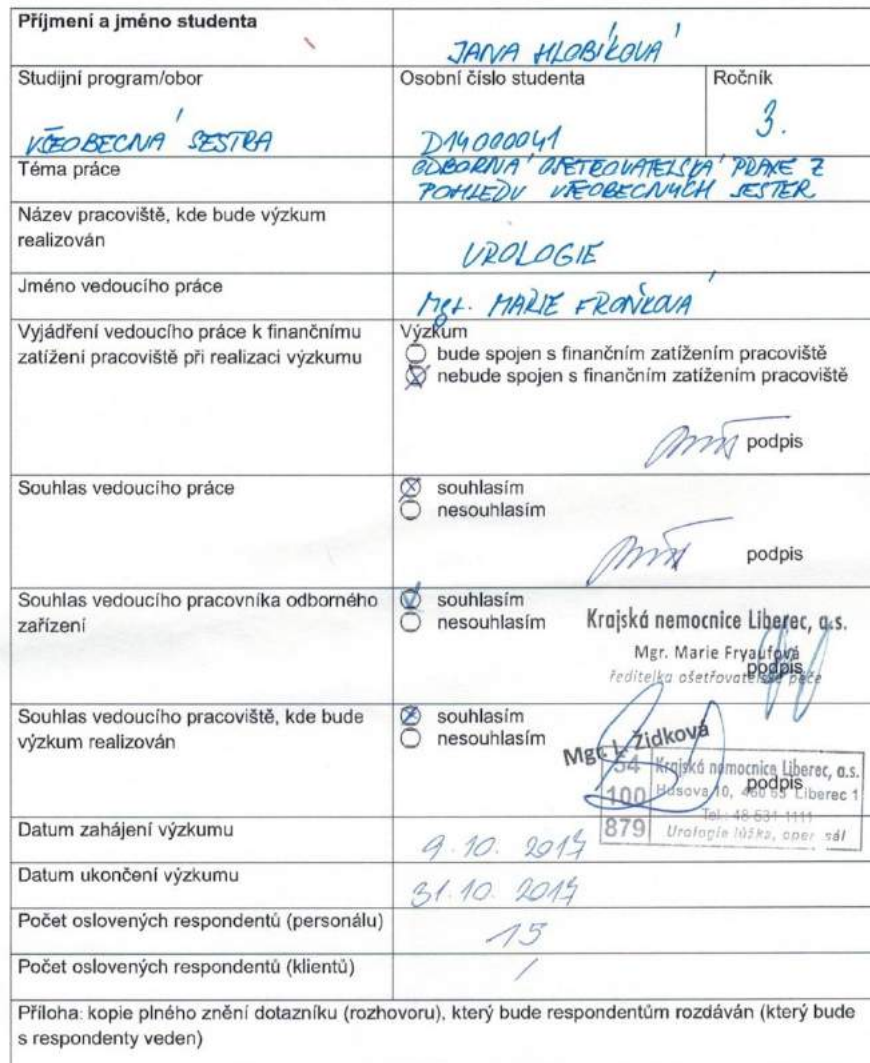 Příjmení a jméno studenta
JANA HLOBÍKOVÁ
Studijní program/obor
Osobní číslo studenta
Ročník
VŠEOBECNÁ SESTRA
D14000041
3.
Téma práce
ODBORNÁ OŠETŘOVATELSKÁ PRAXE Z
POHLEDU VŠEOBECNÝCH SESTER
Název pracoviště, kde bude výzkum
realizován
UROLOGIE
Jméno vedoucího práce
Mgr. MARIE FROŇKOVÁ
Vyjádření vedoucího práce k finančnímu
zatížení pracoviště při realizaci výzkumu
Výzkum
bude spojen s finančním zatížením pracoviště
nebude spojen s finančním zatížením pracoviště
podpis
Souhlas vedoucího práce
souhlasím
nesouhlasím
podpis
Souhlas vedoucího pracovníka odborného
zařízení
souhlasím
nesouhlasím
Krajská nemocnice Liberec, a.s.
Mgr. Marie Fryaufová
podpis
ředitelka ošetřovatelské péče
Souhlas vedoucího pracoviště, kde bude
výzkum realizován
souhlasím
nesouhlasím
Mgr. L. Židková
54 Krajská nemocnice Liberec, a.s.
podpis
100 Husova 10, 460 63 Liberec 1
Tel.: 48 531 1111
879 Urologie lůžka, oper. sál
Datum zahájení výzkumu
9.10. 2017
Datum ukončení výzkumu
31.10. 2017
Počet oslovených respondentů (personálu)
15
Počet oslovených respondentů (klientů)
/
Příloha: kopie plného znění dotazníku (rozhovoru), který bude respondentům rozdáván (který bude
s respondenty veden)